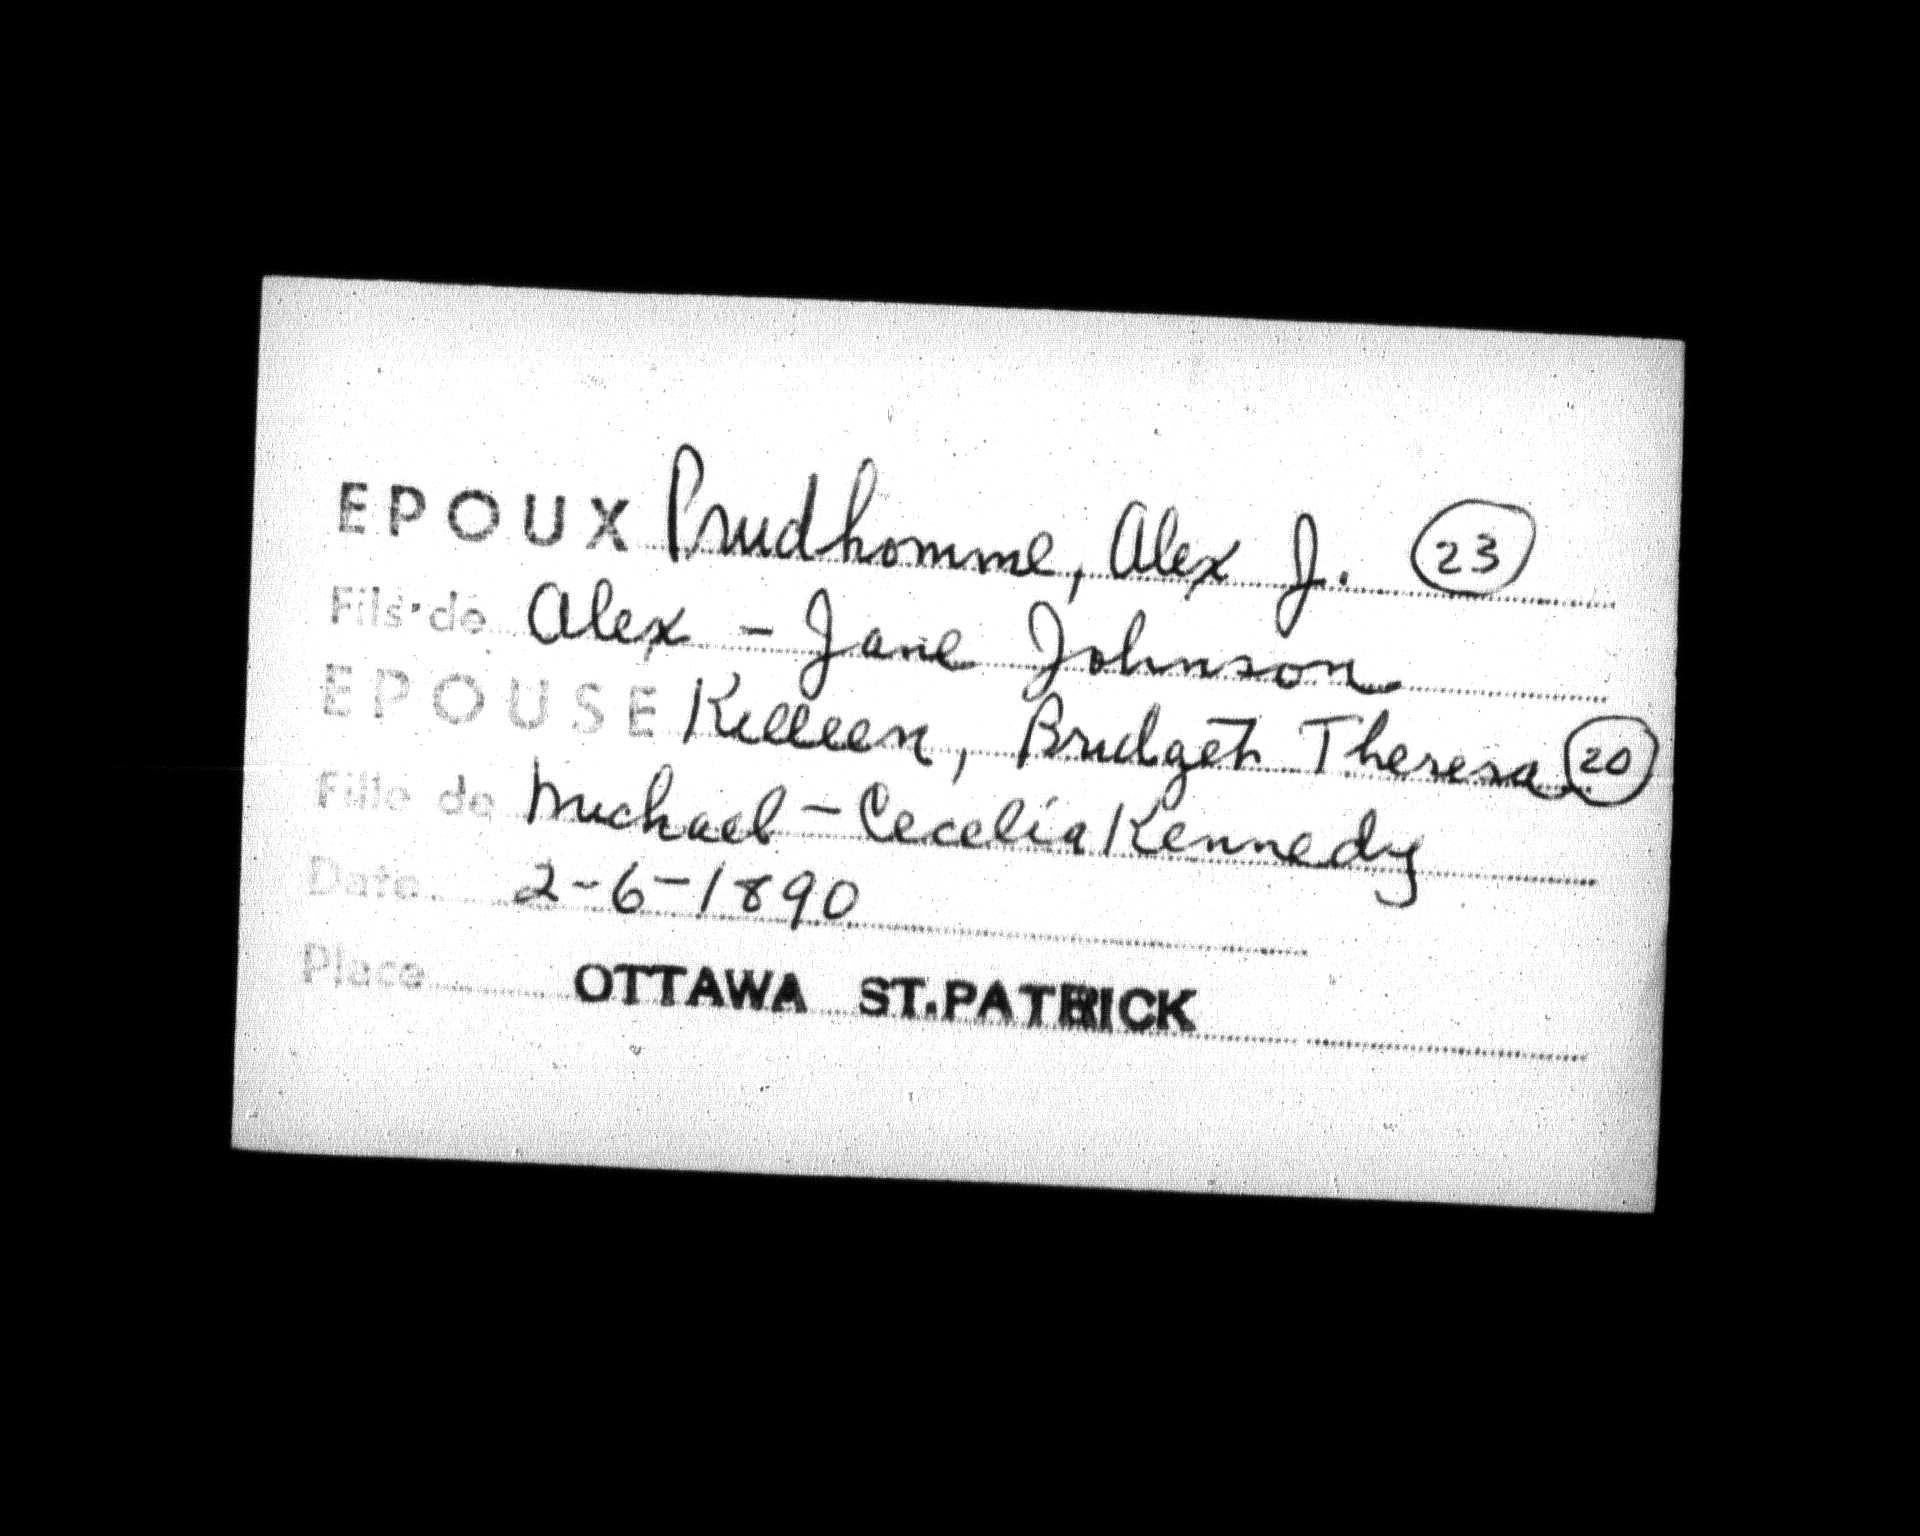 EPOUX Prudhomme, Alex J. 23
Fils de Alex - Jane Johnson
EPOUSE Killeen, Bridget Theresa 20
Fille de Michael - Cecelia Kennedy
Date 2-6-1890
Place OTTAWA ST.PATRICK